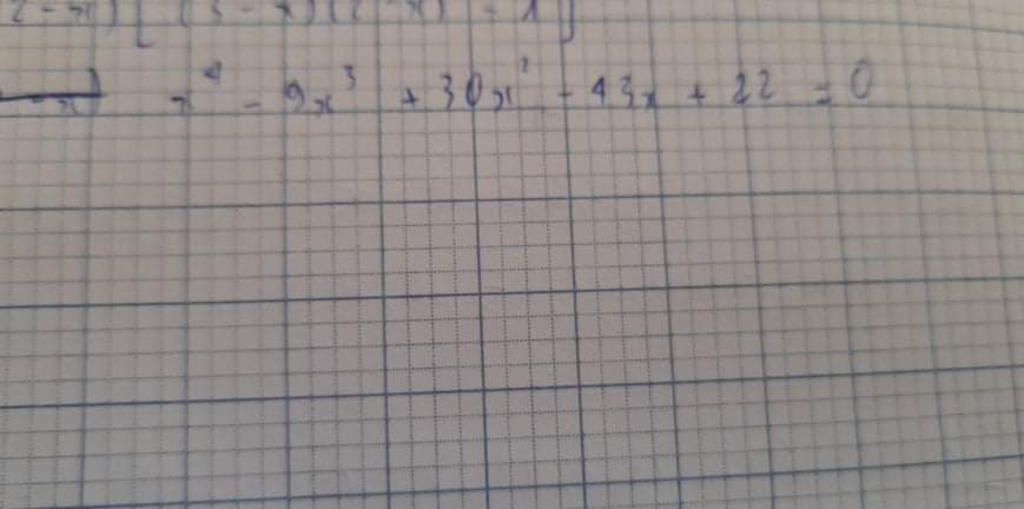 2-x) [ (3-x)(2-x) - 1 ]
x⁴ - 9x³ + 30x² - 43x + 22 = 0